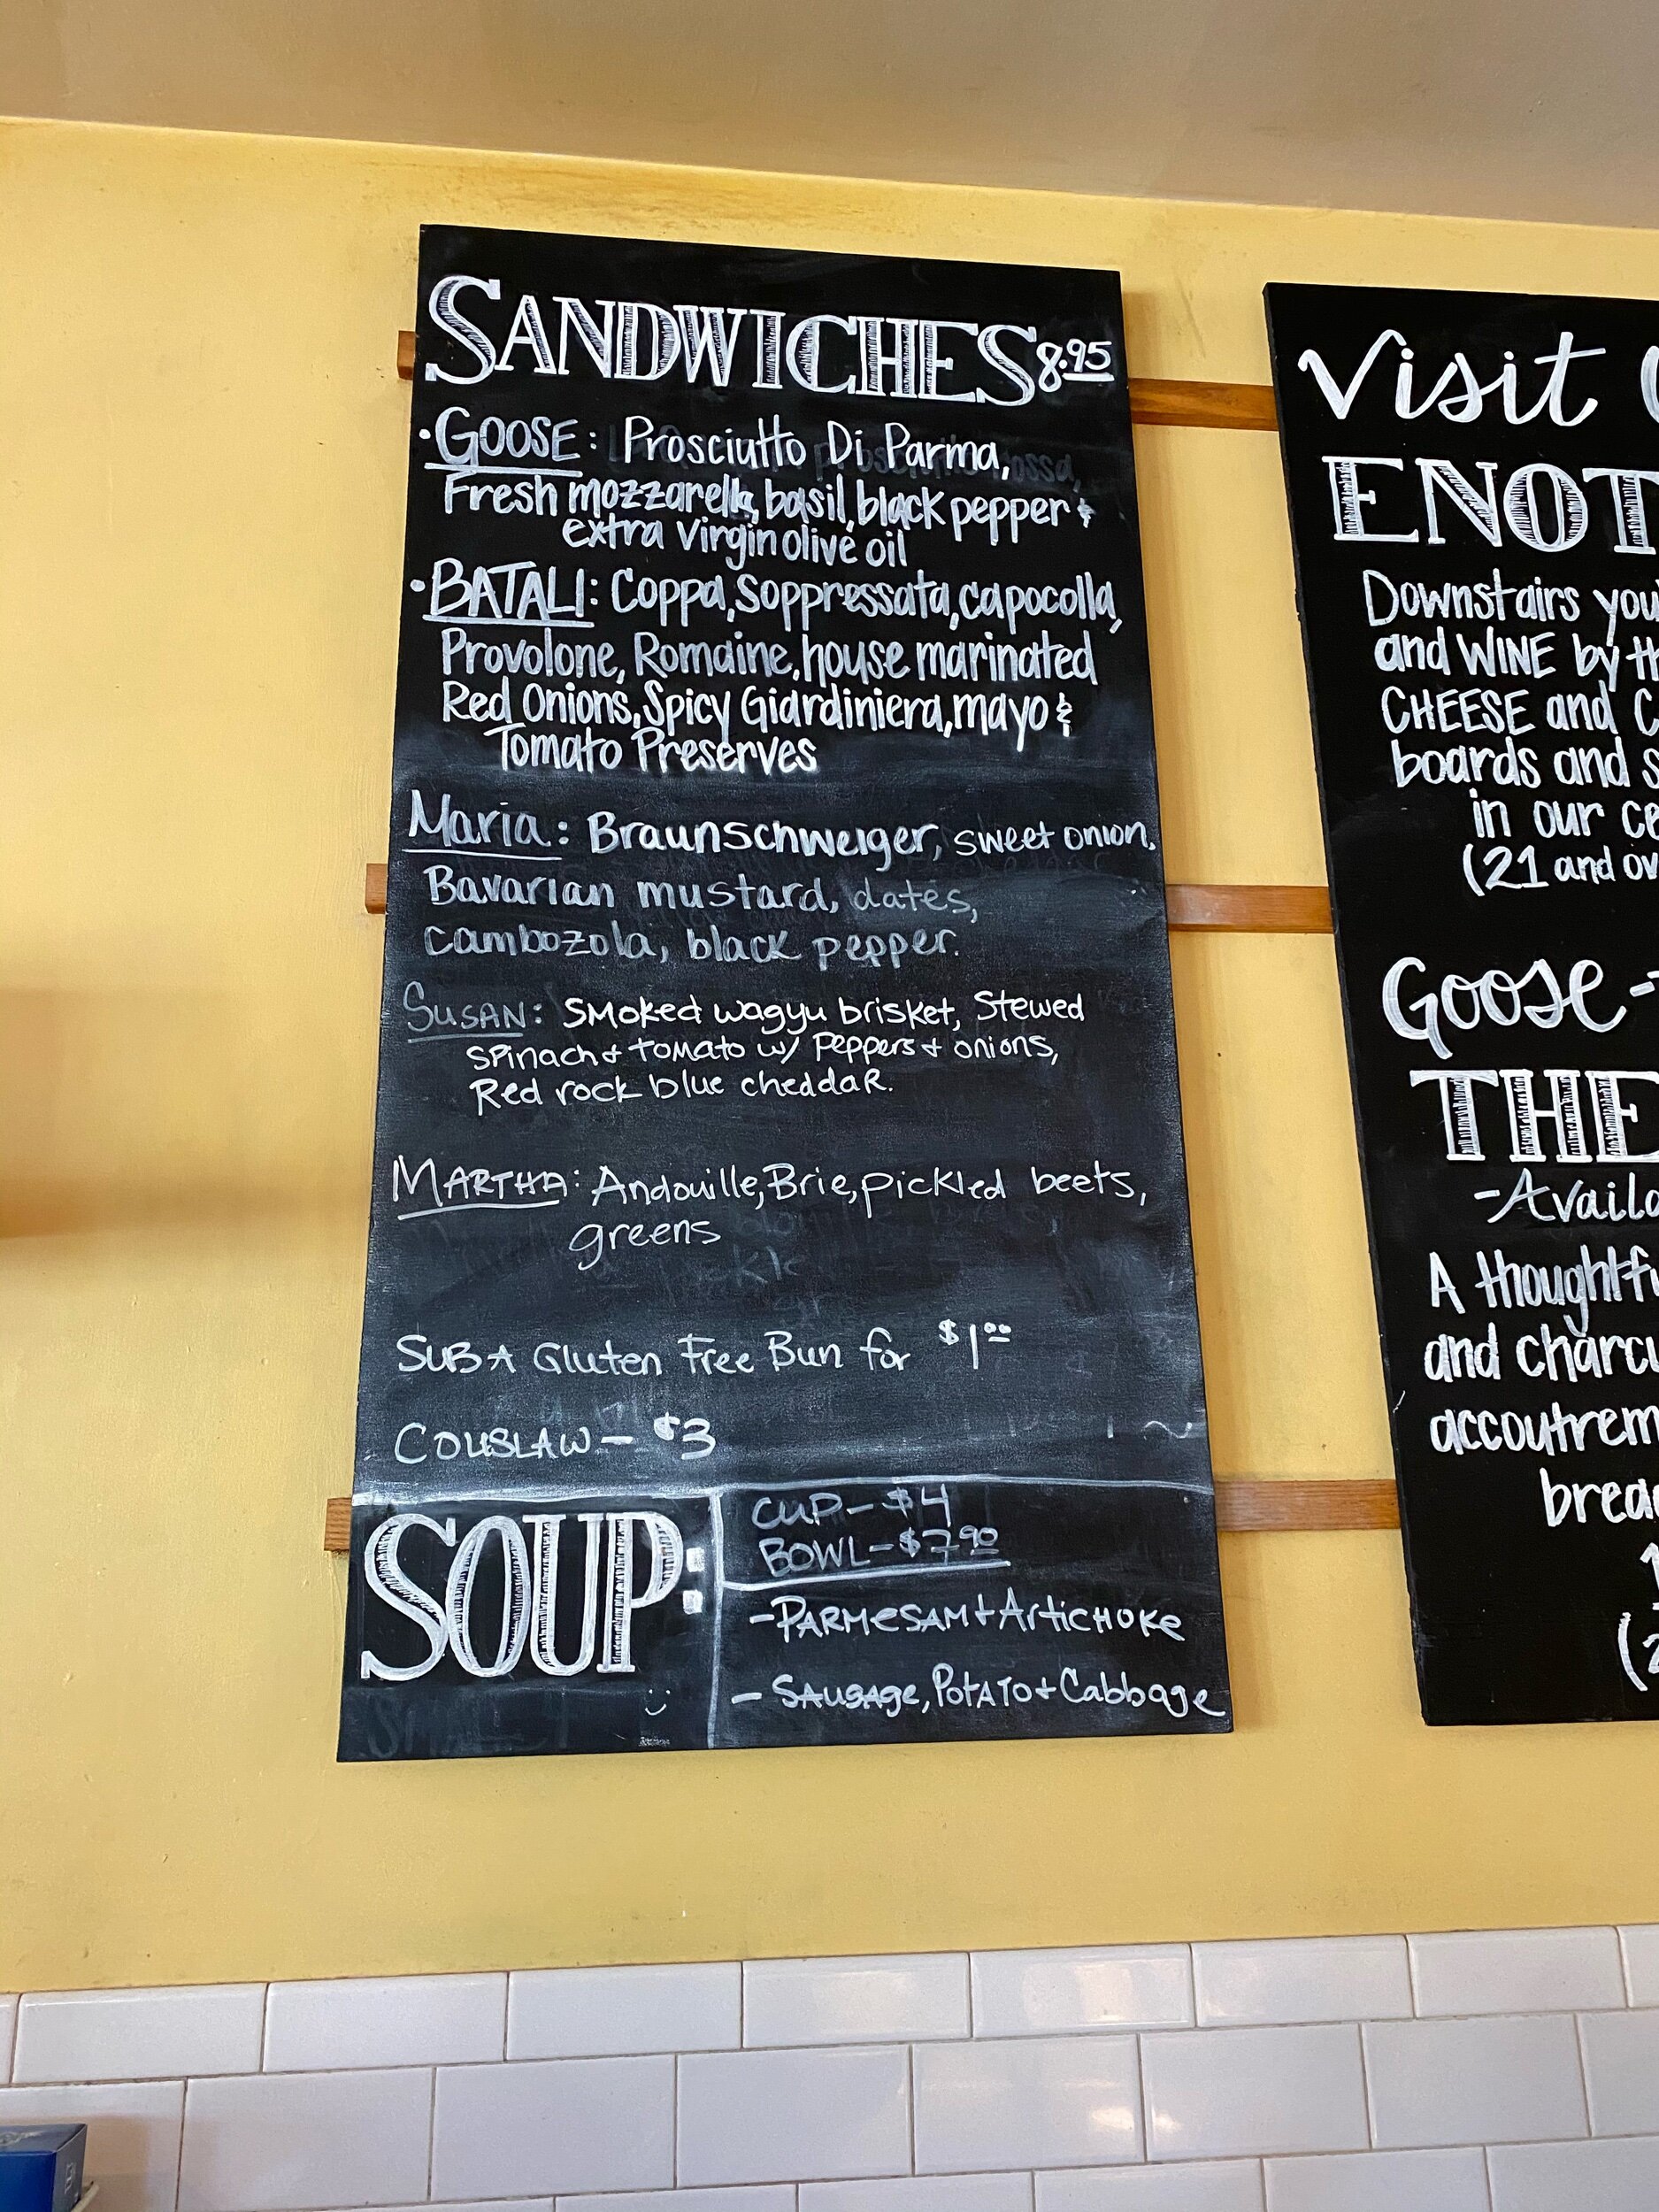 SANDWICHES 8.95
•GOOSE: Prosciutto Di Parma,
Fresh mozzarella, basil, black pepper &
extra virgin olive oil
•BATALI: Coppa, Soppressata, capocolla,
Provolone, Romaine, house marinated
Red Onions, Spicy Giardiniera, mayo &
Tomato Preserves
Maria: Braunschweiger, sweet onion,
Bavarian mustard, dates,
cambozola, black pepper.
SUSAN: Smoked wagyu brisket, Stewed
spinach + tomato w/ Peppers + onions,
Red rock blue cheddar.
MARTHA: Andouille, Brie, pickled beets,
greens
SUB A Gluten Free Bun for $1.00
COLESLAW - $3
SOUP:
CUP - $4
BOWL - $7.90
- PARMESAM + Artichoke
- SAUSAge, POTATO + Cabbage
Visit
ENOT
Downstairs you
and WINE by th
CHEESE and C
boards and s
in our ce
(21 and ov
Goose -
THE
- Availa
A thoughtfu
and charcu
accoutrem
brea